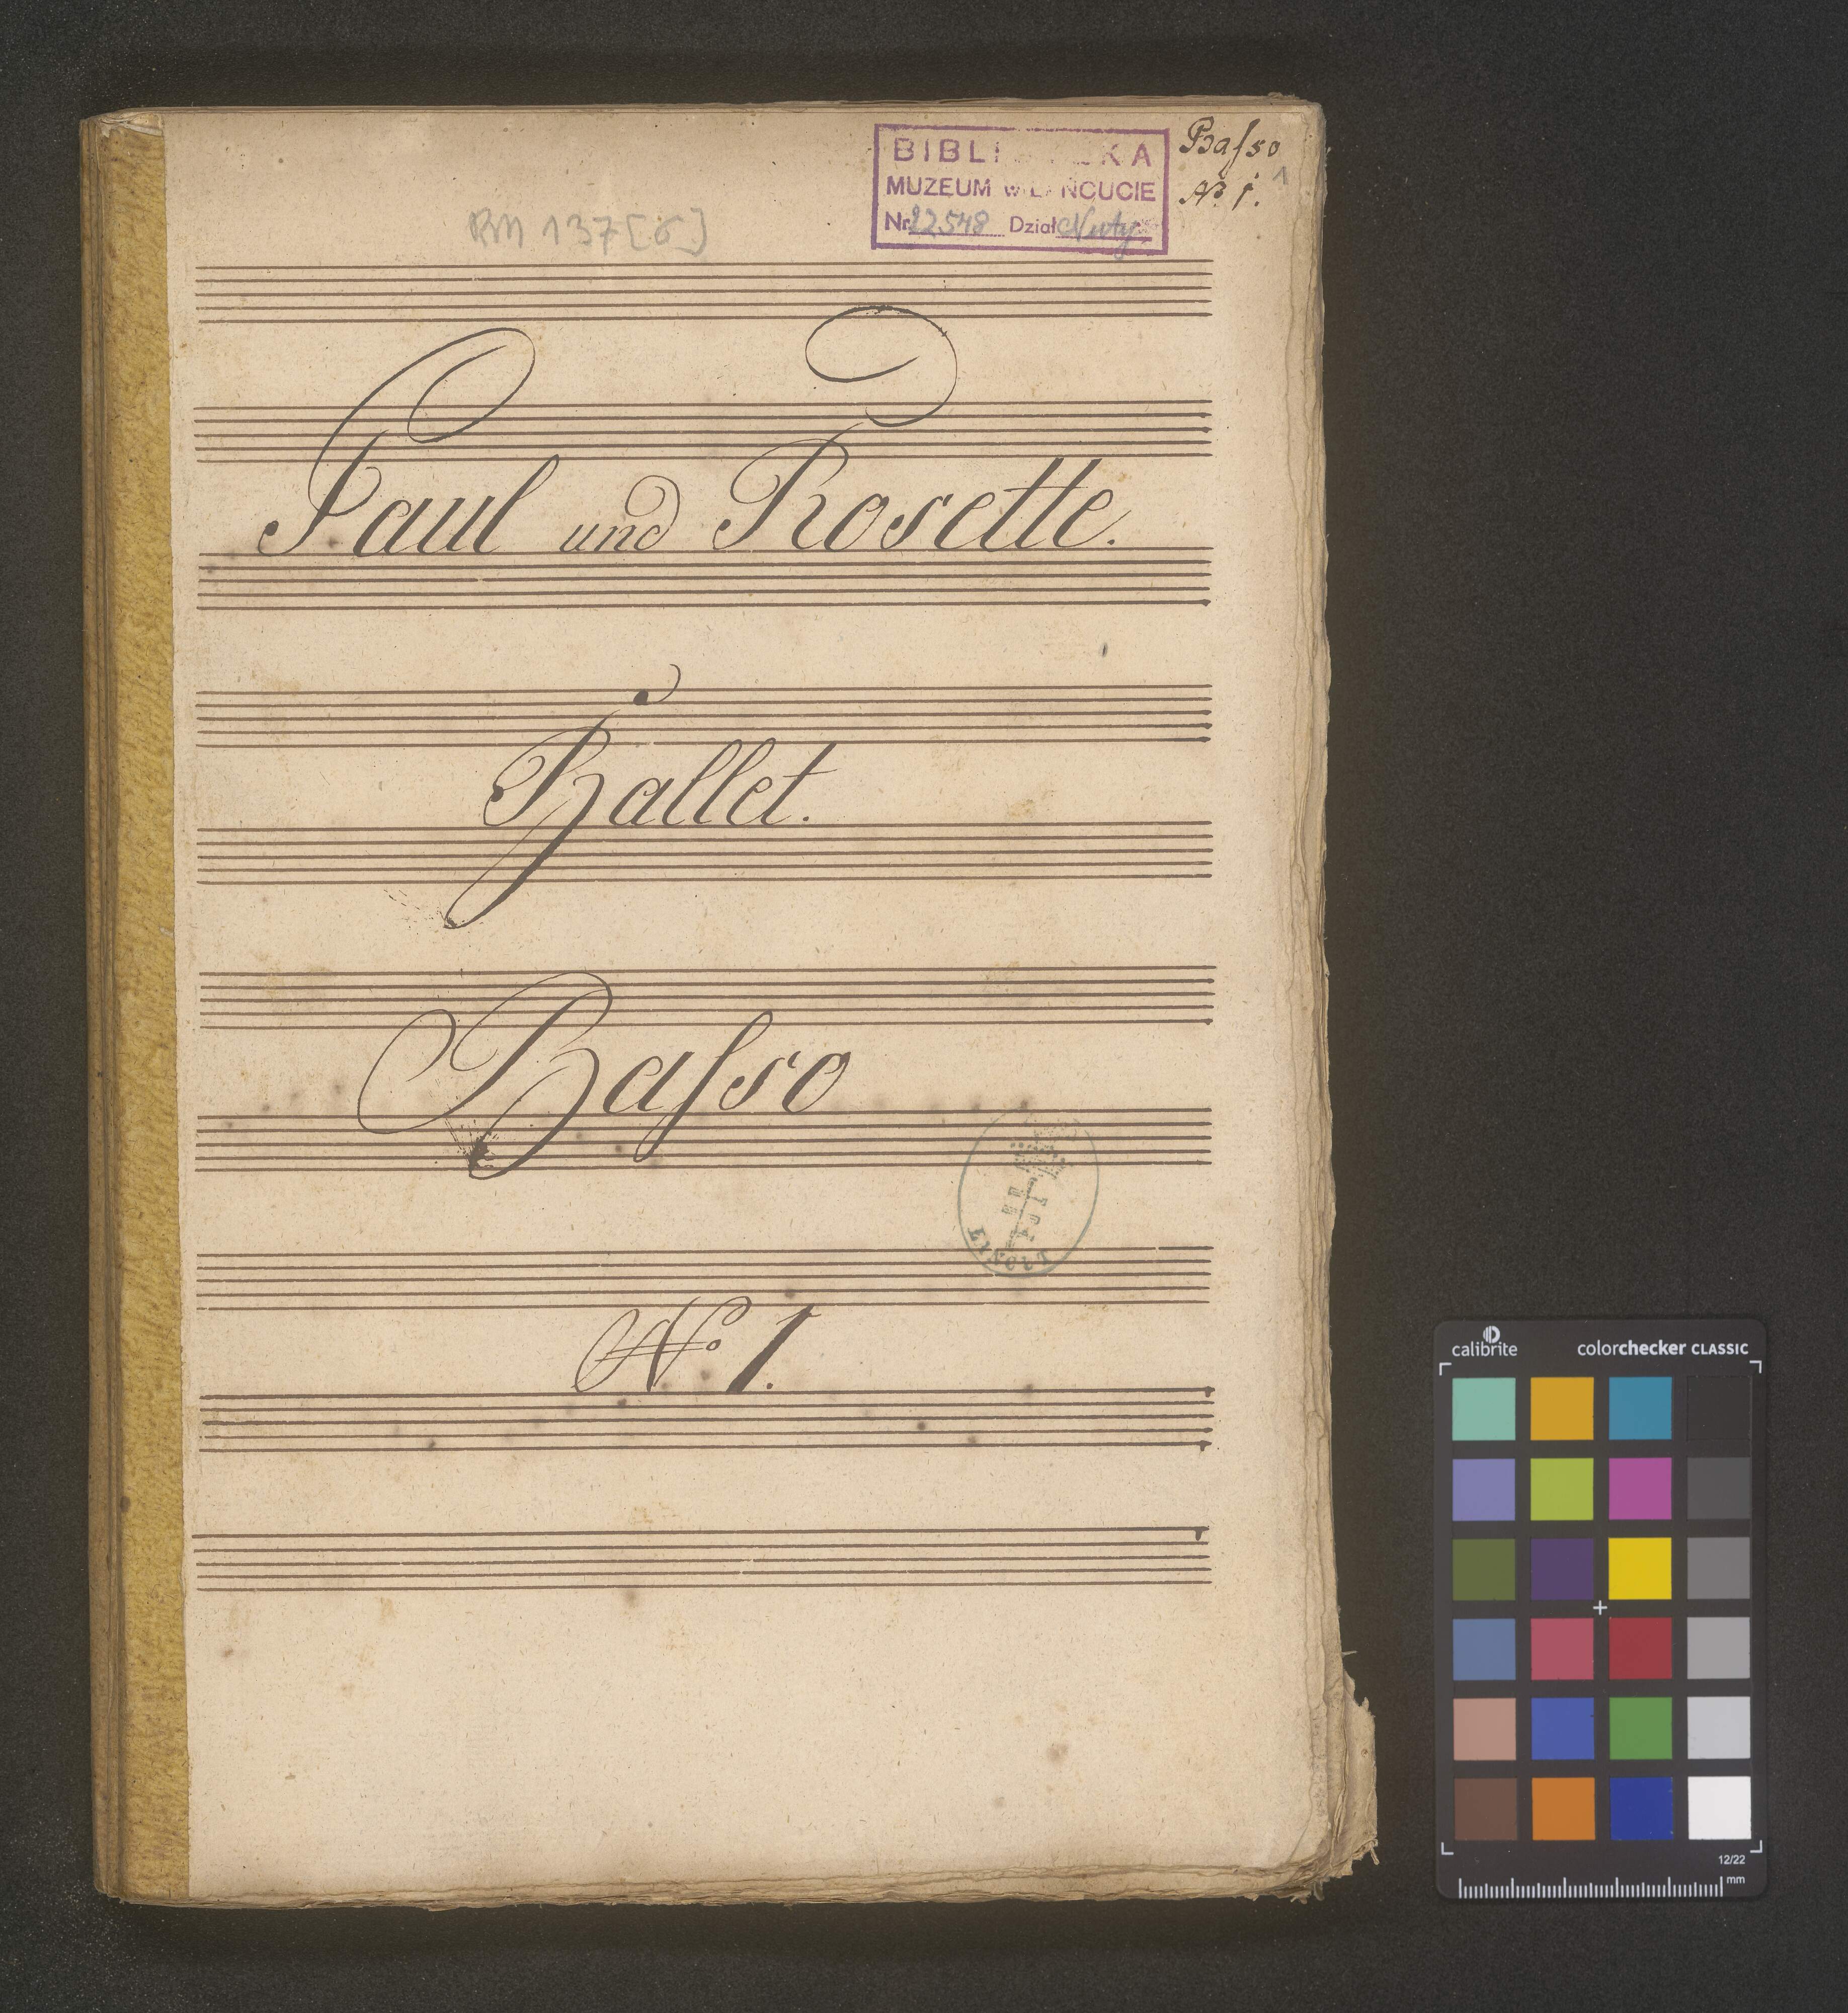 Baſso
No. 1.
1
BIBLI KA
MUZEUM W Ł NCUCIE
Nr 22548 Dział Nuty
RM 137 [5.]
Paul und Rosette.
Ballet.
Baſso
No. 1.
calibrite colorchecker CLASSIC
12/22
mm